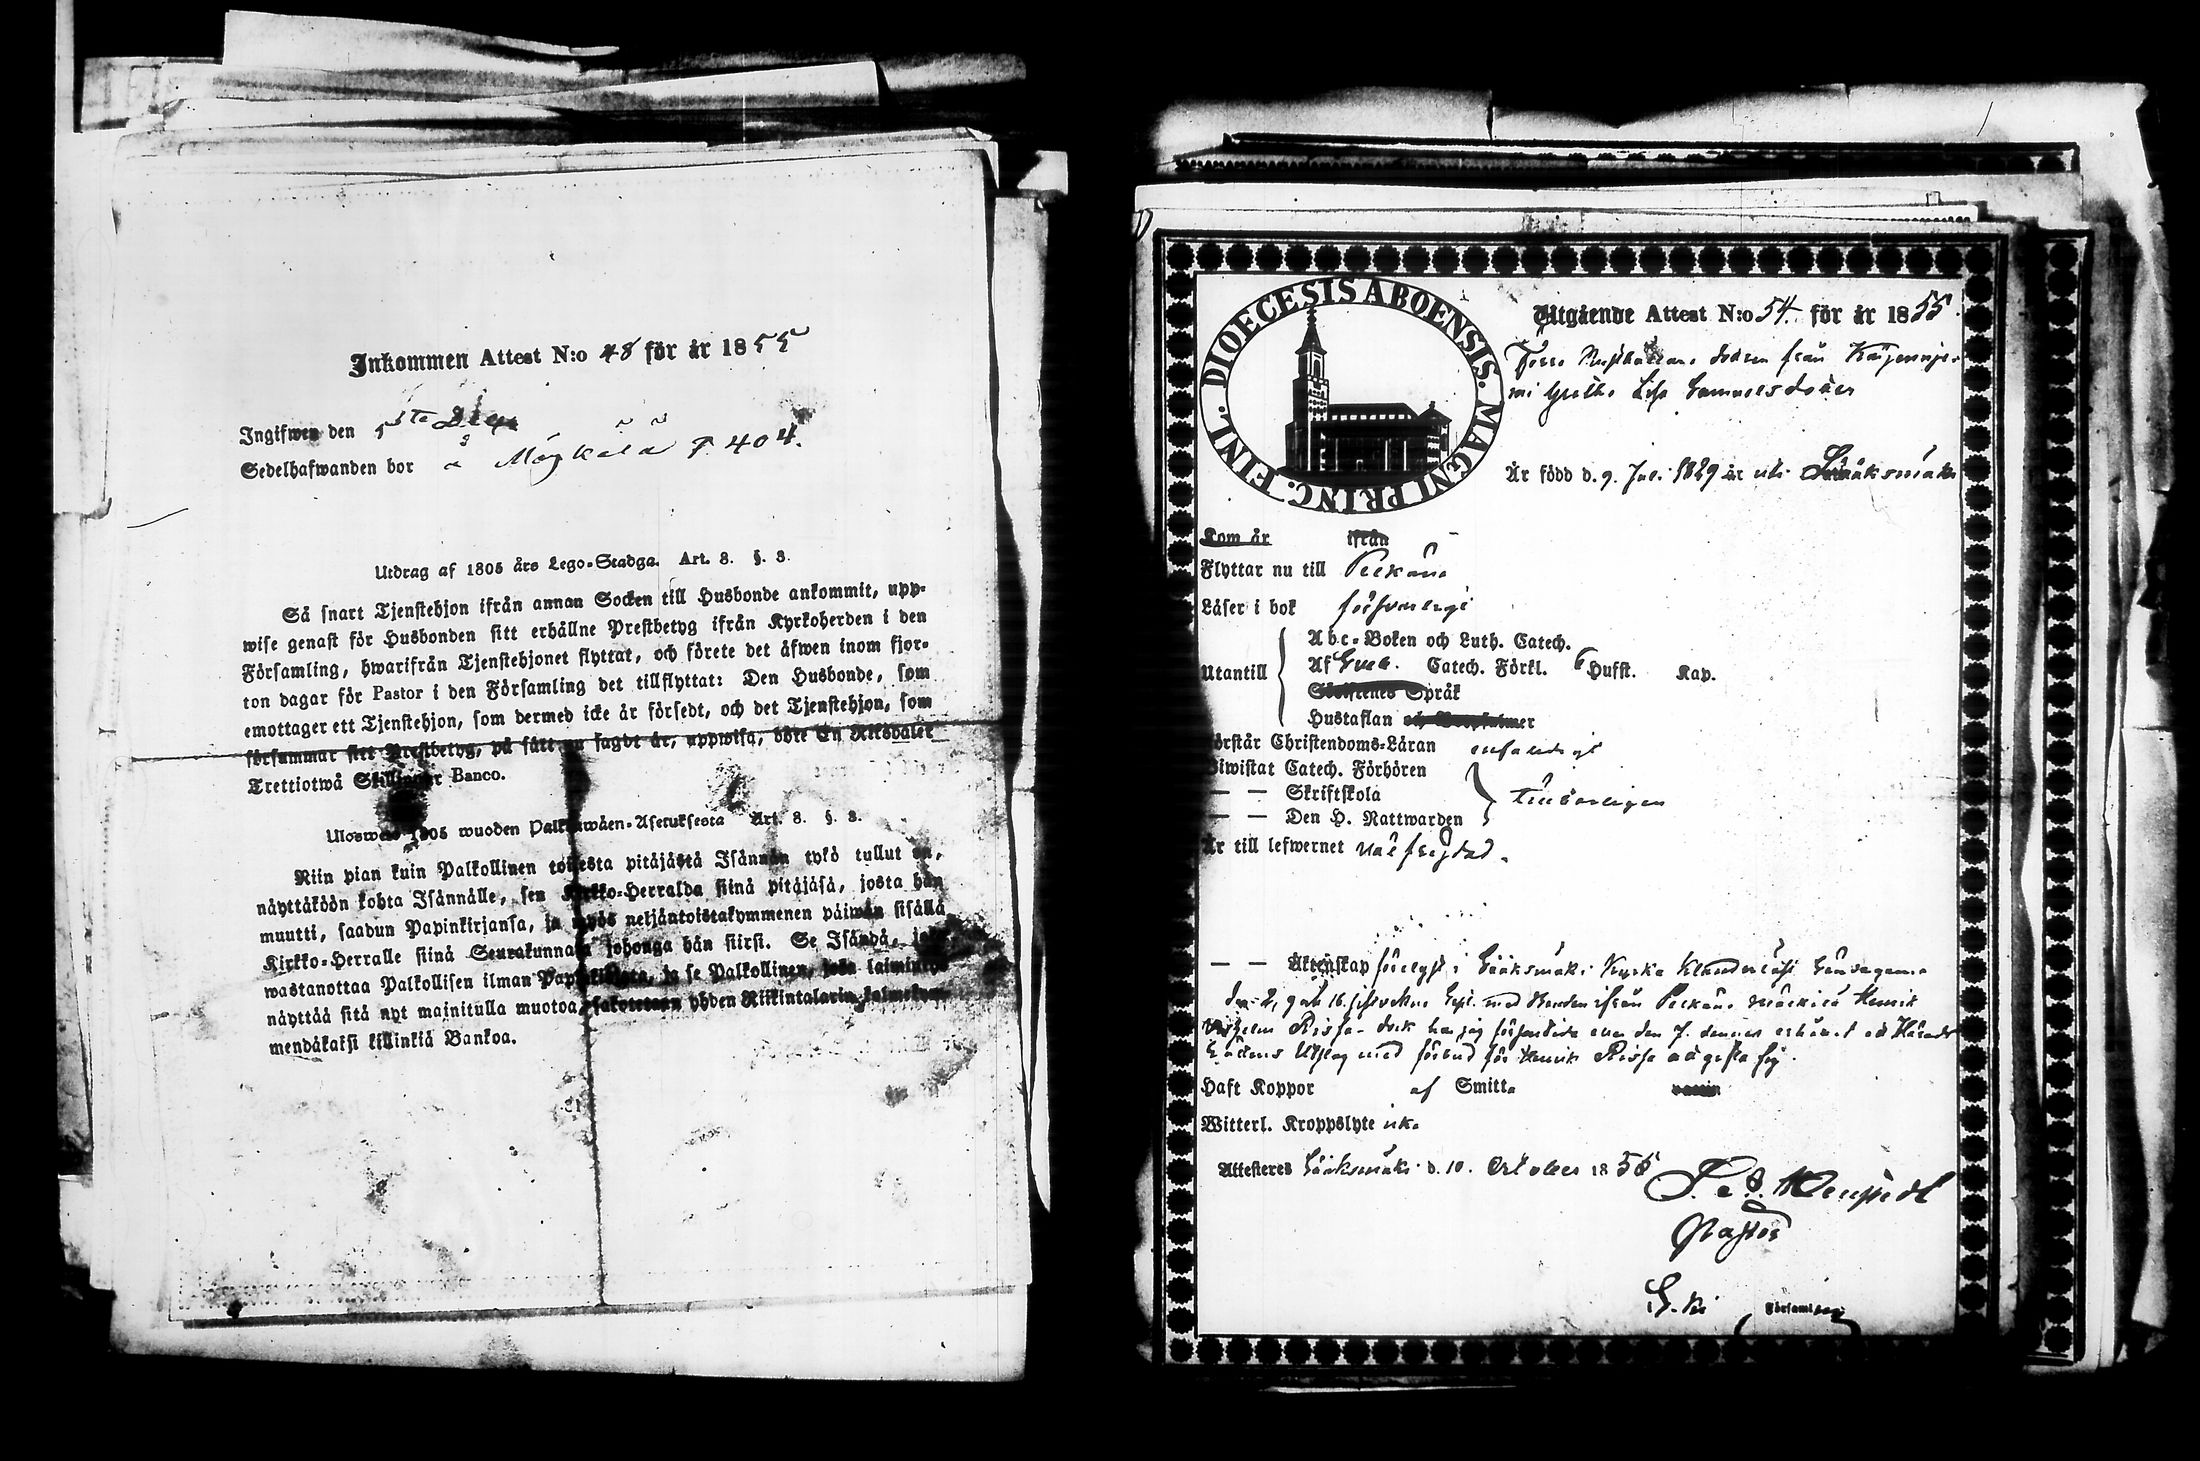 Inkommen Attest N:o 48 för år 1855
Ingifwen den 5
Sedelhafwanden bor å Mäykälä P. 404.
Utdrag af 1805 års Lego-Stadga. Art. 8. §. 3.
Så snart Tjenstehjon ifrån annan Socken till Husbonde ankommit, upp-
wise genast för Husbonden sitt erhållne Prestbetyg ifrån Kyrkoherden i den
Församling, hwarifrån Tjenstehjonet flyttat, och förete det äfwen inom fjor-
ton dagar för Pastor i den Församling det tillflyttat: Den Husbonde, som
emottager ett Tjenstehjon, som dermed icke är försedt, och det Tjenstehjon, som
försummar sitt Prestbetyg, på sätt nu sagdt är, uppwisa, böte En Riksdaler
Trettiotwå Skillingar Banco.
Uloswedo 1805 wuoden Palkkawäen-Asetuksesta Art. 8. §. 3.
Niin pian kuin Palkollinen toisesta pitäjästä Isännän tykö tullut on,
näyttäköön kohta Isännälle, sen Kirkko-Herralda siinä pitäjäsä, josta hän
muutti, saadun Papinkirjansa, ja myös neljäntoistakymmenen päiwän sisällä
Kirkko-Herralle siinä Seurakunnasa johonga hän siirsi. Se Isändä, joka
wastanottaa Palkollisen ilman Papinkirjata, ja se Palkollinen, joka laiminlyö
näyttää sitä nyt mainitulla muotoa, sakotetaan yhden Riikintalarin kolmekym-
mendäkaksi killinkiä Bankoa.
DIOECESIS ABOENSIS. MAGNI PRINC. FINL.
Utgående Attest N:o 54. för år 1855.
dotren från
Greta Lisa Samuelsdotter
Är född d. 9. Jul. 1829 är uti Sääksmäki
Kom år ifrån
Flyttar nu till Pelkäne
Läser i bok försvarligt
Utantill
Abc-Boken och Luth. Catech.
Af Sveb. Catech. Förkl. 6 Hufst. Kap.
Skriftenes Språk
Hustaflan
Förstår Christendoms-Läran enfaldigt
Biwistat Catech. Förhören
— — Skriftskola
— — Den H. Nattwarden
tillbörligen
Är till lefwernet välfrejdad.
— — Äktenskap förelyst i Sääksmäki Kyrka
den 2, 9 och 16 sistvekne Sept. med Drängen ifrån Pelkäne Henrik
Wilhelm Rissa dock har jag den 7. dennes erhållit
Rättens Utslag med förbud för Henrik Rissa att gifta sig.
Haft Koppor af Smitta
Witterl. Kroppslyte icke
Attesteres Sääksmäki d. 10. October 1855
Pastor
S.ki Församling